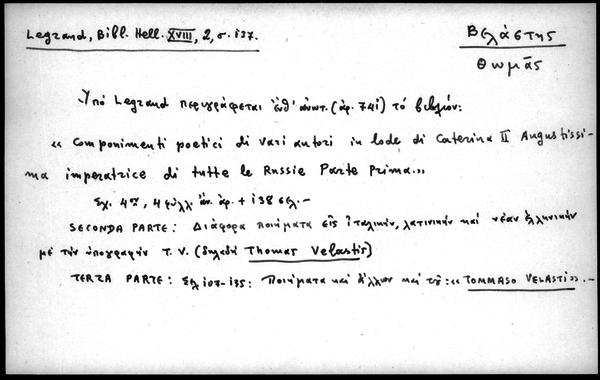 Legrand, Bibl. Hell. XVIII, 2, σ. 137.
Βελάστης
Θωμᾶς
Ὑπό Legrand περιγράφεται ἐνθ' ἀνωτ. (ἀρ. 741) τό βιβλίον:
« Componimenti poetici di vari autori in lode di Caterina II Augustissi-
ma imperatrice di tutte le Russie Parte Prima.»
Σχ. 4ον, 4 φύλλ. ἄν. ἀρ. + 138 σελ. –
SECONDA PARTE: Διάφορα ποιήματα εἰς ἰταλικήν, λατινικήν καί νέαν ἑλληνικήν
μέ τήν ὑπογραφήν T. V. (δηλαδή Thomas Velastis)
TERZA PARTE: Σελ 107-135: Ποιήματα καί ἄλλων καί τοῦ: «TOMMASO VELASTI». –